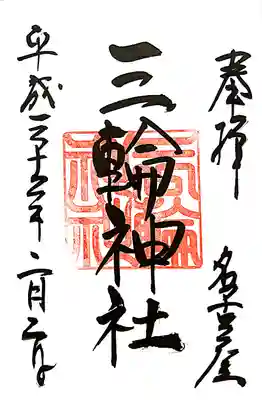 奉拝
名古屋
三輪神社
三輪神社
平成三十年二月二日